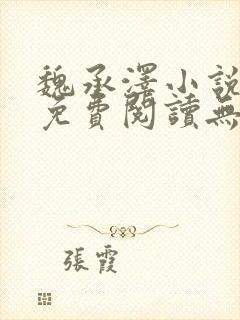 魏承澤小說
免費閱讀無
張霞